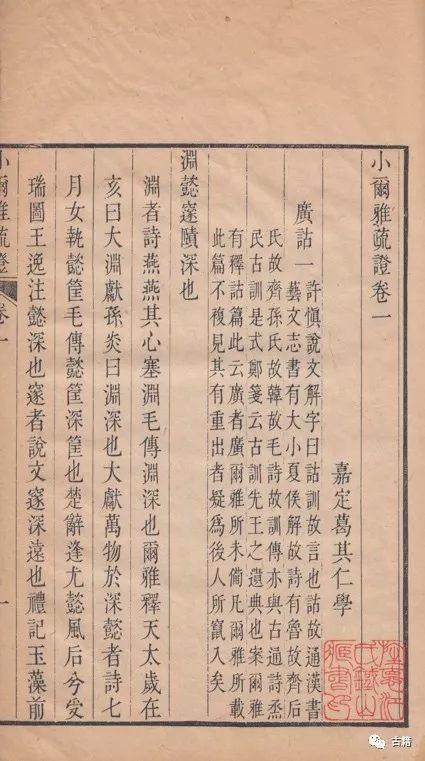 小爾雅疏證卷一
嘉定葛其仁學
廣詁一
許愼說文解字曰詁訓故言也詁故通漢書
藝文志書有大小夏侯解故詩有魯故齊后
氏故齊孫氏故韓故毛詩故訓傳亦與古通詩烝
民古訓是式鄭箋云古訓先王之遺典也案爾雅
有釋詁篇此云廣者廣爾雅所未僃凡爾雅所載
此篇不複見其有重出者疑爲後人所竄入矣
淵懿邃賾深也
淵者詩燕燕其心塞淵毛傳淵深也爾雅釋天太歲在
亥曰大淵獻孫炎曰淵深也大獻萬物於深懿者詩七
月女執懿筐毛傳懿筐深筐也楚辭逢尤懿風后兮受
瑞圖王逸注懿深也邃者說文邃深遠也禮記玉藻前
小爾雅疏證 卷一 一
古籍